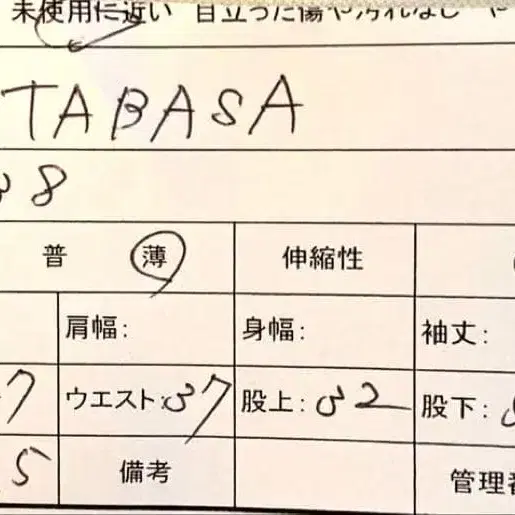 未使用に近い 目立った傷や汚れなし や
TABASA
38
普 薄 伸縮性
肩幅: 身幅: 袖丈:
7 ウエスト:37 股上:32 股下:
5 備考 管理